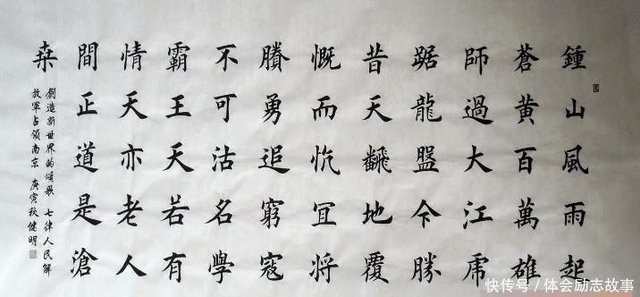 鍾山風雨起
蒼黄百萬雄
師過大江虎
踞龍盤今勝
昔天飜地覆
慨而忼宜將
賸勇追窮寇
不可沽名學
霸王天若有
情天亦老人
間正道是滄
桒
創造新世界的頌歌 七律人民解
放軍占領南京 庚寅秋 健明
快传号/体会励志故事